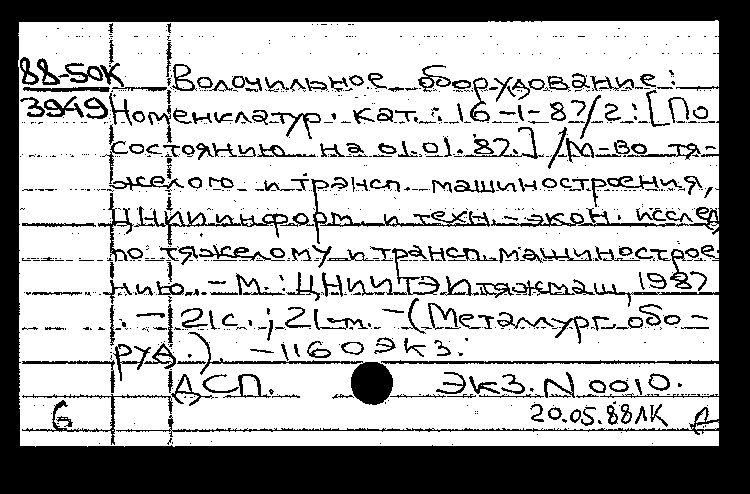 88-50К Волочильное оборудование:
3949 Номенклатур. кат.: 16-1-87/2: [По
состоянию на 01.01.87.] / М-во тя-
желого и трансп. машиностроения,
ЦНИИ информ. и техн.-экон. исслед
по тяжелому и трансп. машинострое-
нию. - М.: ЦНИИТЭИтяжмаш, 1987
. - 21 с.; 21 см. - (Металлург. обо-
руд.). - 1160 экз.
ДСП. Экз. N 0010.
6 20.05.88 ЛК